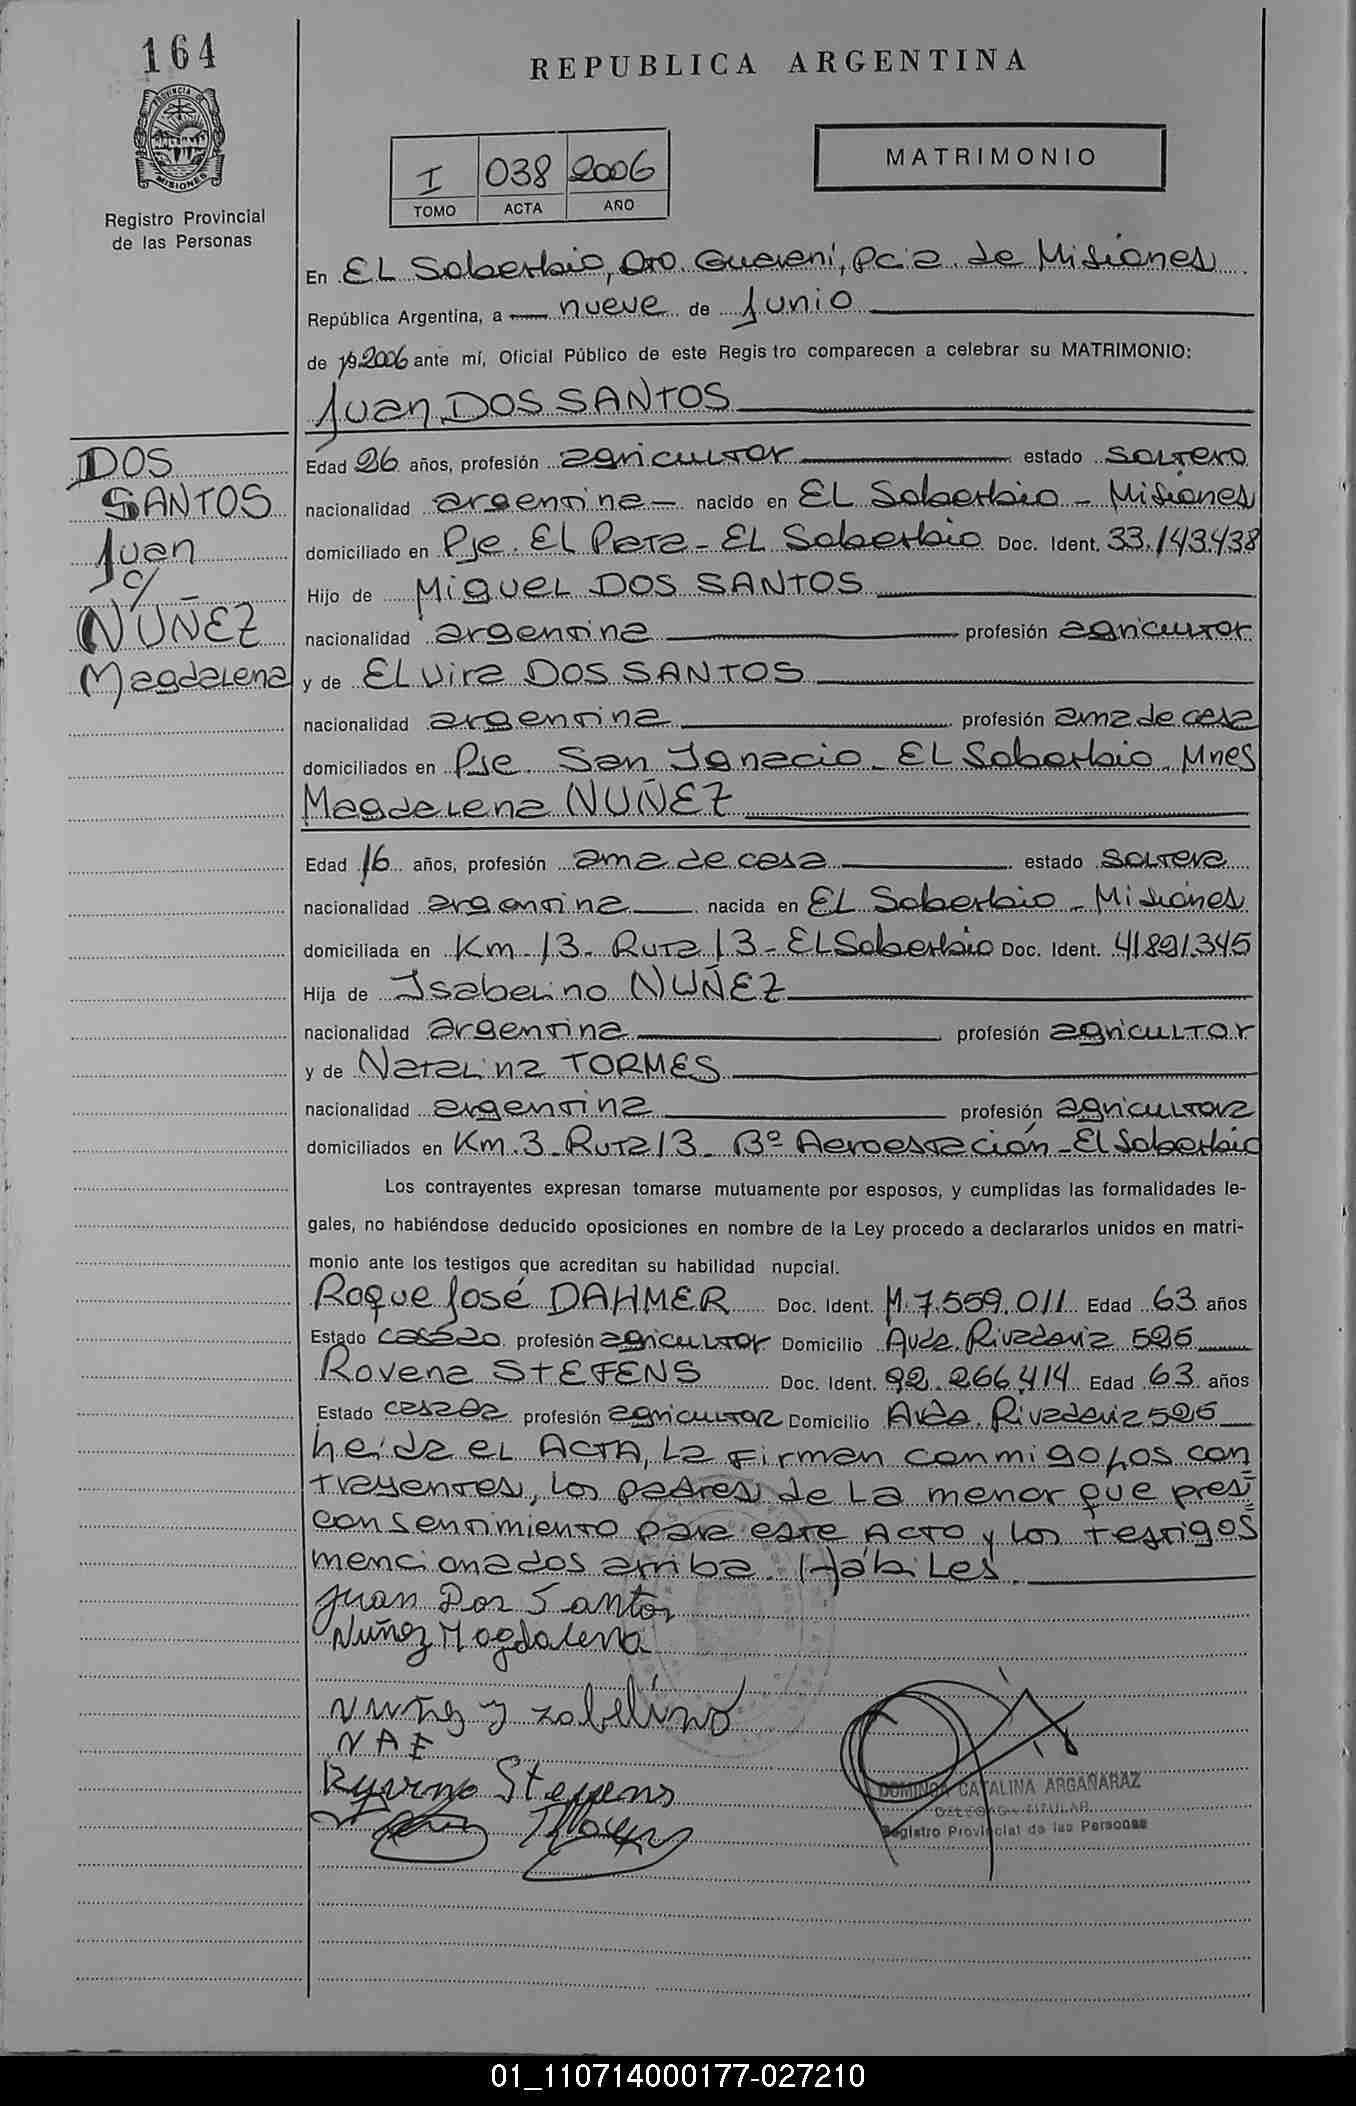 164
REPUBLICA ARGENTINA
PROVINCIA DE
MISIONES
Registro Provincial
de las Personas
I 038 2006
TOMO ACTA AÑO
MATRIMONIO
En EL Soberbio, Dto. Guaraní, Pcia. de Misiones
República Argentina, a nueve de Junio
de 2006 ante mí, Oficial Público de este Registro comparecen a celebrar su MATRIMONIO:
Juan DOS SANTOS
DOS
SANTOS
Juan
c/
NUÑEZ
Magdalena
Edad 26 años, profesión agricultor estado soltero
nacionalidad argentina nacido en EL Soberbio - Misiones
domiciliado en Pje. El Para - EL Soberbio Doc. Ident. 33.143.438
Hijo de Miguel DOS SANTOS
nacionalidad argentina profesión agricultor
y de Elvira DOS SANTOS
nacionalidad argentina profesión ama de casa
domiciliados en Pje. San Ignacio - EL Soberbio - Mnes
Magdalena NUÑEZ
Edad 16 años, profesión ama de casa estado soltera
nacionalidad argentina nacida en EL Soberbio - Misiones
domiciliada en Km. 13 - Ruta 13 - EL Soberbio Doc. Ident. 41.891.345
Hija de Isabelino NUÑEZ
nacionalidad argentina profesión agricultor
y de Natalina TORMES
nacionalidad argentina profesión agricultora
domiciliados en Km. 3 - Ruta 13 - Bº Aeroestación - El Soberbio
Los contrayentes expresan tomarse mutuamente por esposos, y cumplidas las formalidades le-
gales, no habiéndose deducido oposiciones en nombre de la Ley procedo a declararlos unidos en matri-
monio ante los testigos que acreditan su habilidad nupcial.
Roque José DAHMER Doc. Ident. M. 7.559.011 Edad 63 años
Estado casado profesión agricultor Domicilio Avda. Rivadavia 525
Rovena STEFENS Doc. Ident. 92.266.414 Edad 63 años
Estado casada profesión agricultora Domicilio Avda. Rivadavia 525
Leida el ACTA, La firman conmigo Los con
trayentes, los padres de La menor que pres
consentimiento para este ACTO y los testigos
mencionados arriba. Hábiles.
Juan Dos Santos
Nuñez Magdalena
Nuñez y zabelino
NAE
Stefens
DOMINGA CATALINA ARGAÑARAZ
DELEGADA TITULAR
Registro Provincial de las Personas
01_110714000177-027210